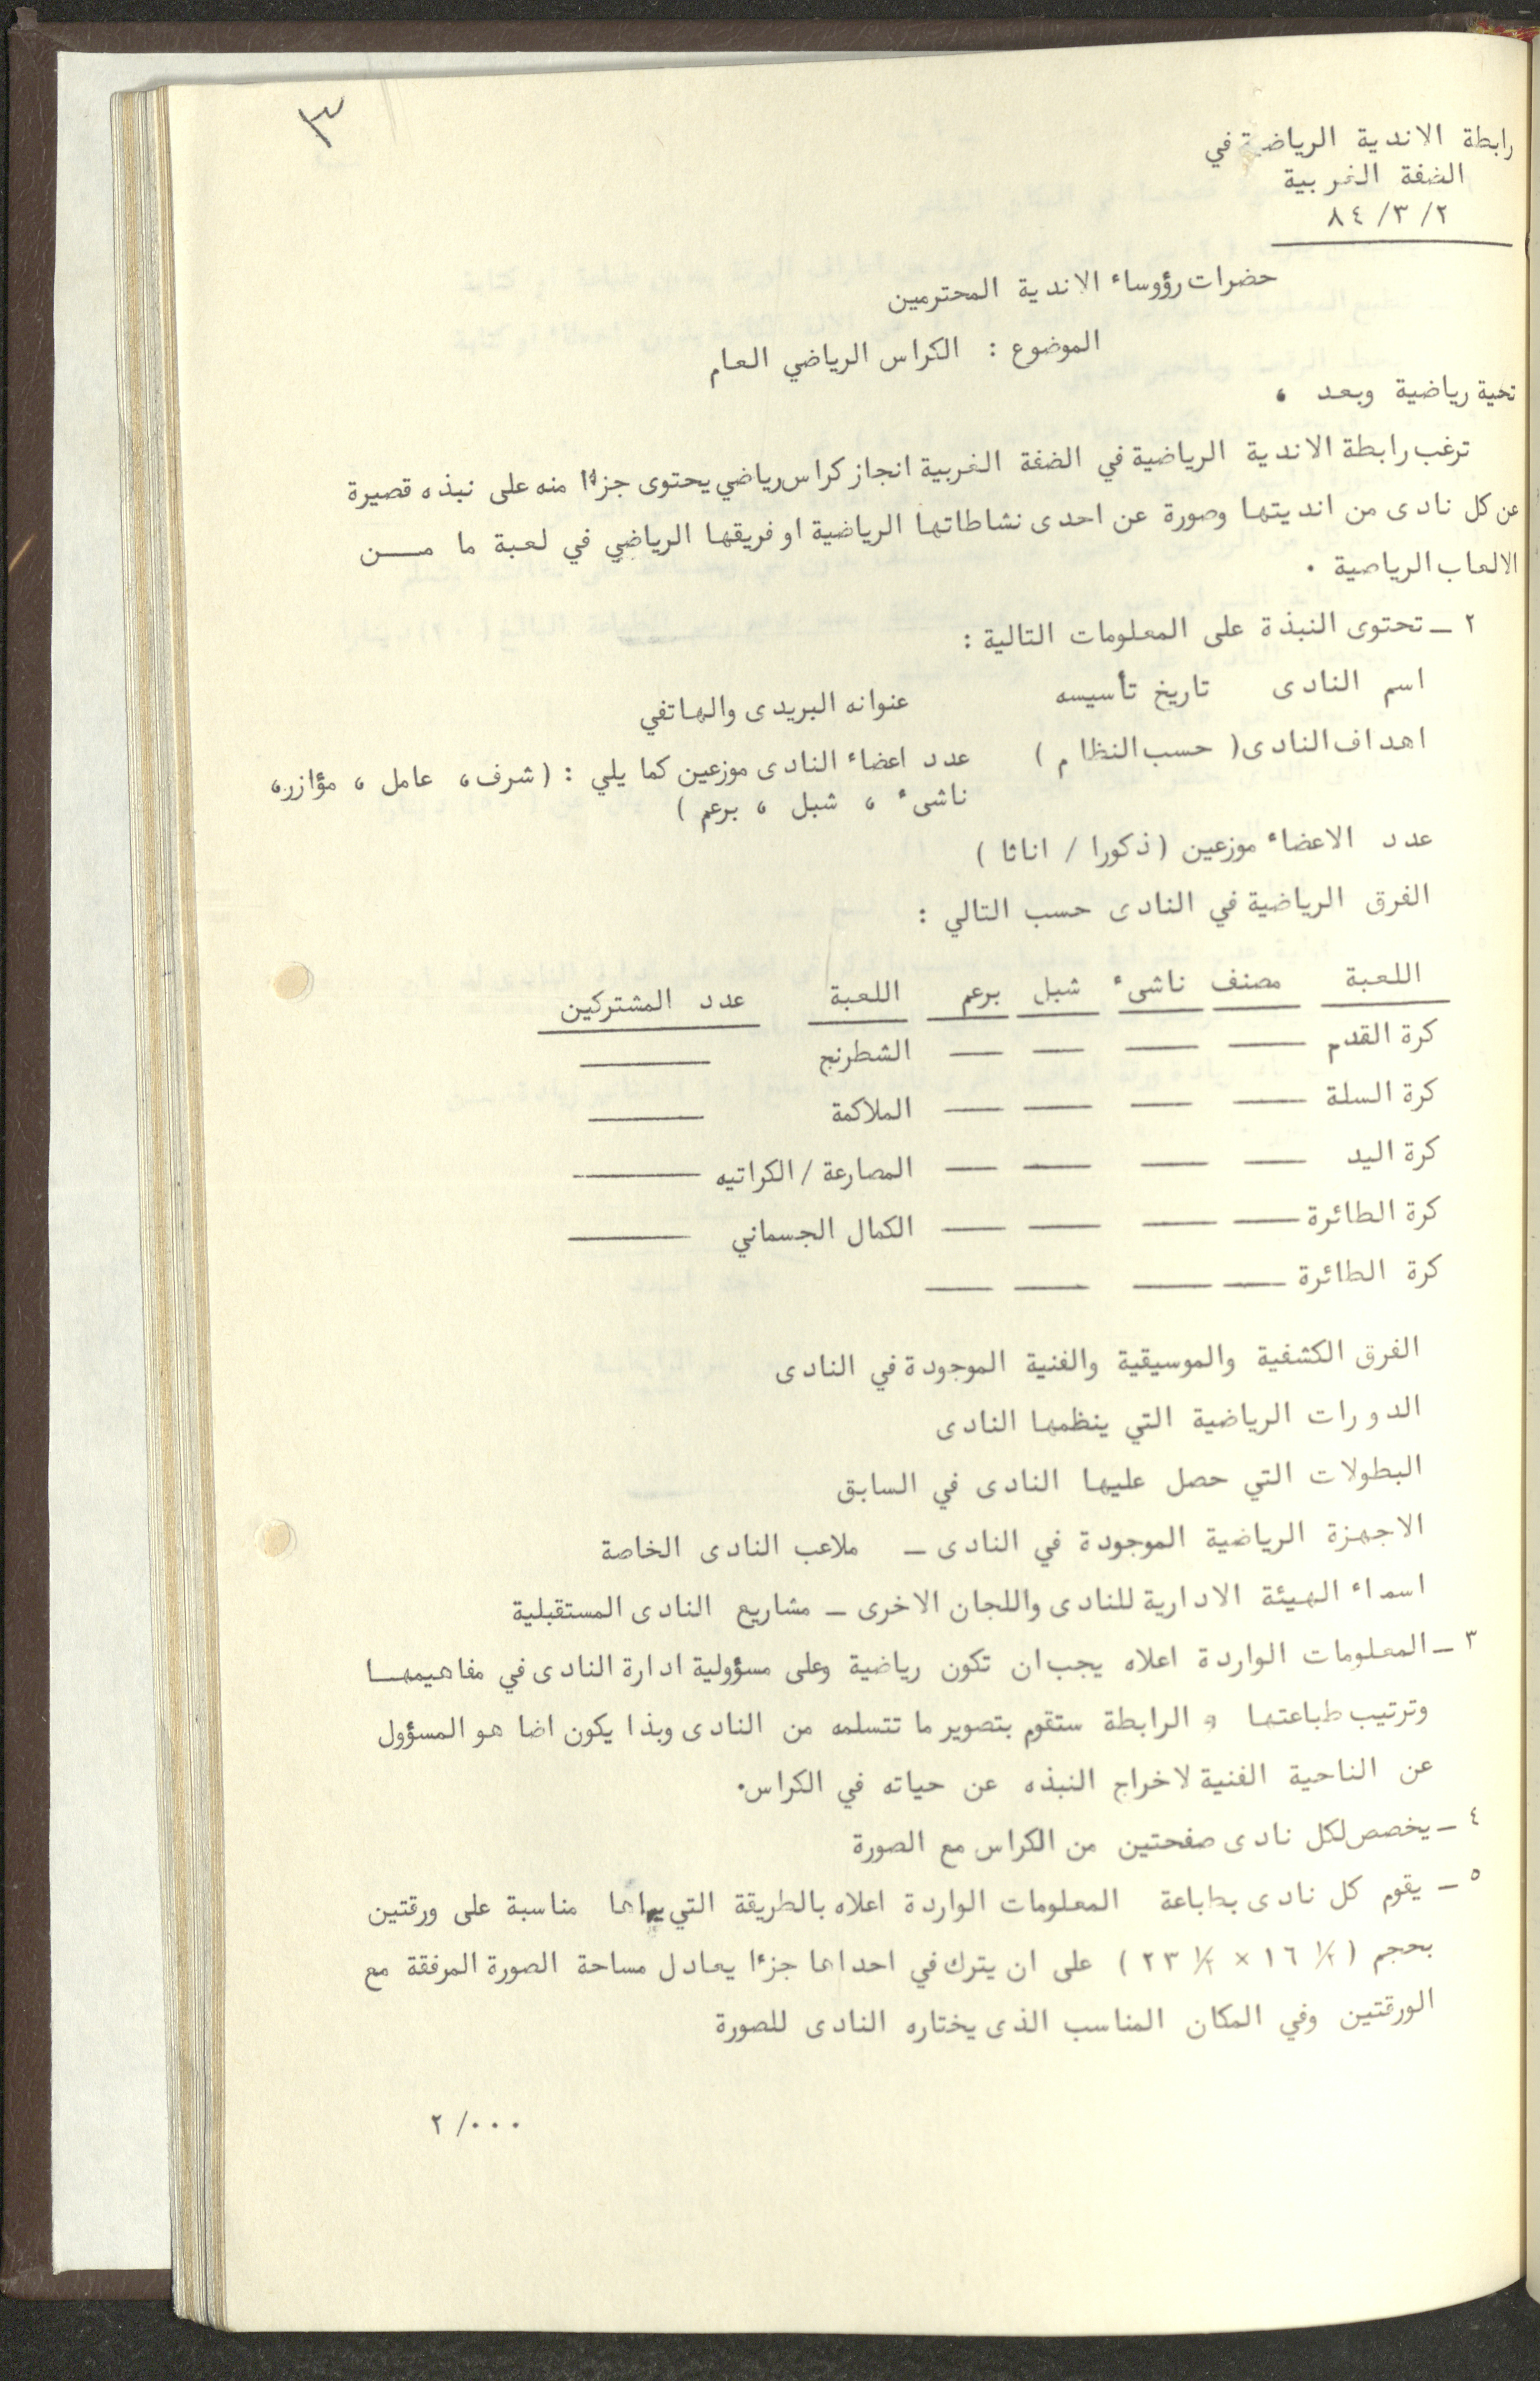 ٣
رابطة الاندية الرياضية في
الضفة الغربية
٨٤/٣/٢
حضرات رؤوساء الاندية المحترمين
الموضوع : الكراس الرياضي العام
تحية رياضية وبعد ،
ترغب رابطة الاندية الرياضية في الضفة الغربية انجاز كراس رياضي يحتوى جزءا منه على نبذه قصيرة
عن كل نادى من انديتها وصورة عن احدى نشاطاتها الرياضية او فريقها الرياضي في لعبة ما مــــن
الالعاب الرياضية .
٢ ــ تحتوى النبذة على المعلومات التالية :
اسم النادى تاريخ تأسيسه عنوانه البريدى والهاتفي
اهداف النادى ( حسب النظام ) عدد اعضاء النادى موزعين كما يلي : ( شرف ، عامل ، مؤازر ،
ناشىء ، شبل ، برعم )
عدد الاعضاء موزعين ( ذكورا / اناثا )
الفرق الرياضية في النادى حسب التالي :
اللعبة مصنف ناشىء شبل برعم اللعبة عدد المشتركين
كرة القدم ــــ ــــ ــــ ــــ الشطرنج ــــــــ
كرة السلة ــــ ــــ ــــ ــــ الملاكمة ــــــــ
كرة اليد ــــ ــــ ــــ ــــ المصارعة / الكراتيه ــــــــ
كرة الطائرة ــــ ــــ ــــ ــــ الكمال الجسماني ــــــــ
كرة الطائرة ــــ ــــ ــــ ــــ
الفرق الكشفية والموسيقية والفنية الموجودة في النادى
الدورات الرياضية التي ينظمها النادى
البطولات التي حصل عليها النادى في السابق
الاجهزة الرياضية الموجودة في النادى ــ ملاعب النادى الخاصة
اسماء الهيئة الادارية للنادى واللجان الاخرى ــ مشاريع النادى المستقبلية
٣ ــ المعلومات الواردة اعلاه يجب ان تكون رياضية وعلى مسؤولية ادارة النادى في مفاهيمهــا
وترتيب طباعتها و الرابطة ستقوم بتصوير ما تتسلمه من النادى وبذا يكون اضا هو المسؤول
عن الناحية الفنية لاخراج النبذه عن حياته في الكراس.
٤ ــ يخصص لكل نادى صفحتين من الكراس مع الصورة
٥ ــ يقوم كل نادى بطباعة المعلومات الواردة اعلاه بالطريقة التي يراها مناسبة على ورقتين
بحجم ( ١/٢ ١٦ × ١/٢ ٢٣ ) على ان يترك في احداها جزءا يعادل مساحة الصورة المرفقة مع
الورقتين وفي المكان المناسب الذى يختاره النادى للصورة
٢ /٠٠٠